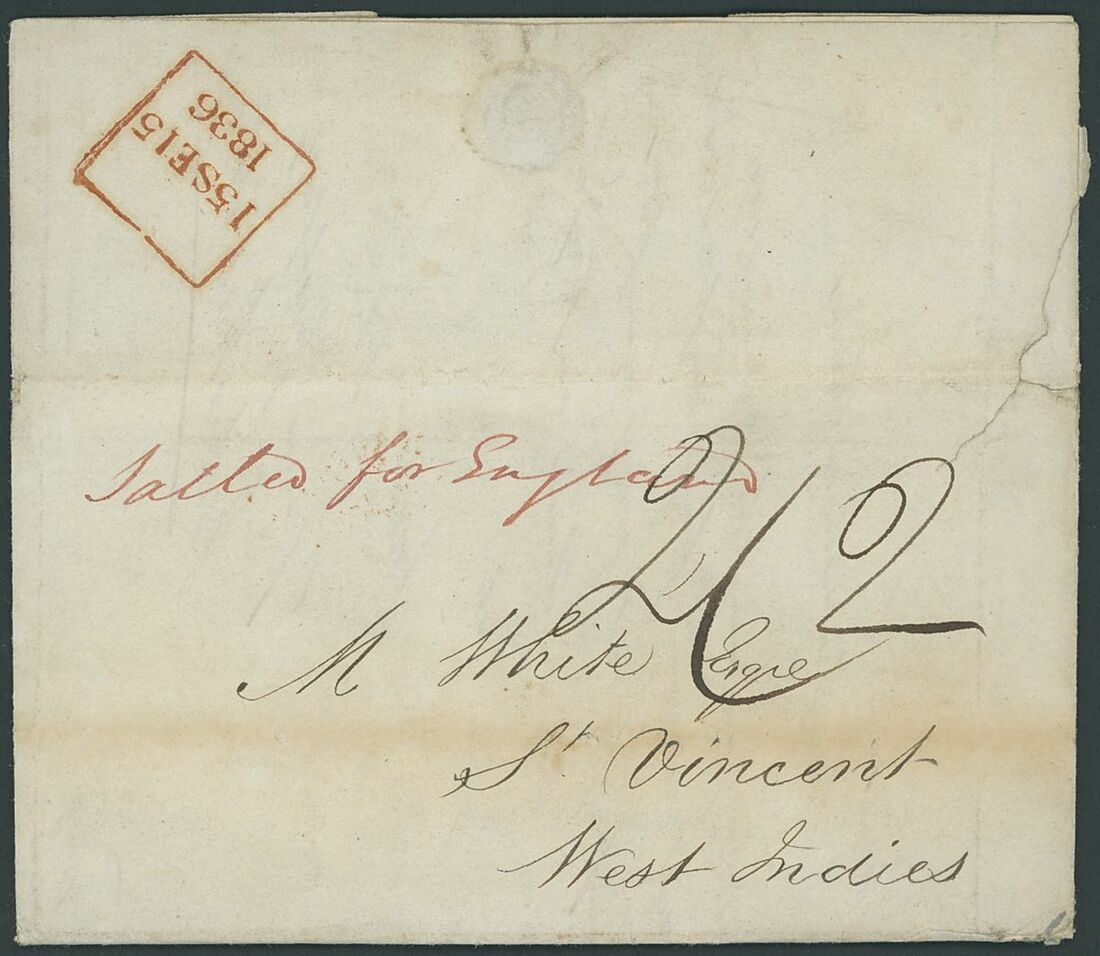 15SE15
1836
Sailed for England
2/2
M White Esqre
St Vincent
West Indies